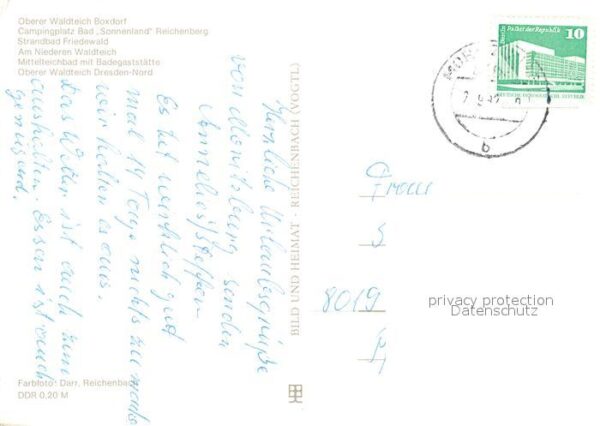 Oberer Waldteich Boxdorf
Campingplatz Bad „Sonnenland" Reichenberg
Strandbad Friedewald
Am Niederen Waldteich
Mittelteichbad mit Badegaststätte
Oberer Waldteich Dresden-Nord
Herzliche Urlaubsgrüße
von Moritzburg senden
Annelies/Steffen
Es tut wirklich gut
mal 14 Tage nichts zu machen
wir halten es aus.
Das Wetter ist auch zum
aushalten. Essen ist auch
genügend.
Farbfoto: Darr, Reichenbach
DDR 0,20 M
BILD UND HEIMAT · REICHENBACH (VOGTL)
Berlin, Palast der Republik
10
DEUTSCHE DEMOKRATISCHE REPUBLIK
b
Frau
8019
privacy protection
Datenschutz